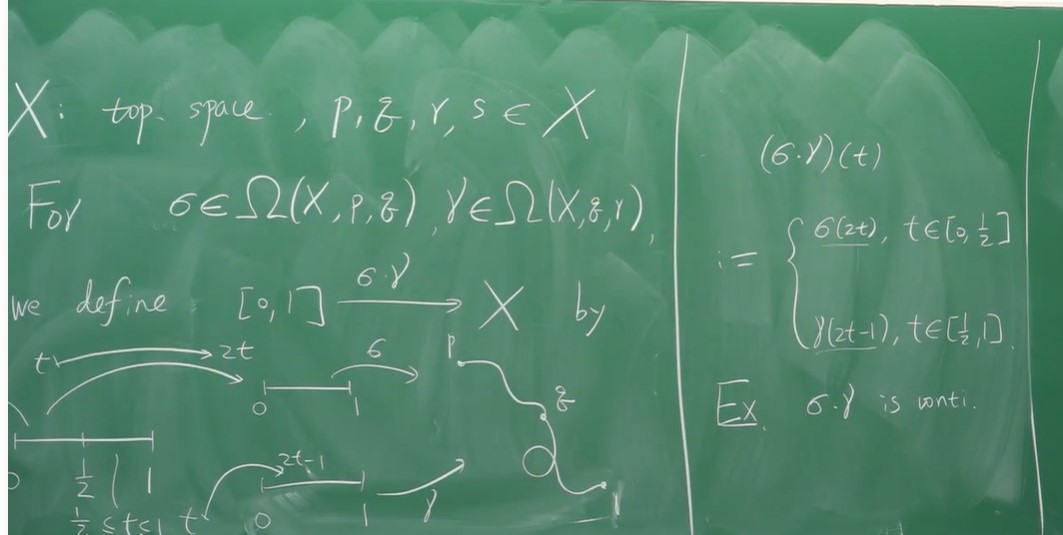 X: top. space, p, q, r, s ∈ X
For σ ∈ Ω(X, p, q), γ ∈ Ω(X, q, r),
we define [0, 1] σ·γ → X by
t ↦ 2t
σ
p
0 1
q
0 1/2 1
2t-1
0 1
γ
r
1/2 ≤ t ≤ 1 t
(σ·γ)(t)
:= { σ(2t), t ∈ [0, 1/2]
γ(2t-1), t ∈ [1/2, 1].
Ex. σ·γ is conti.